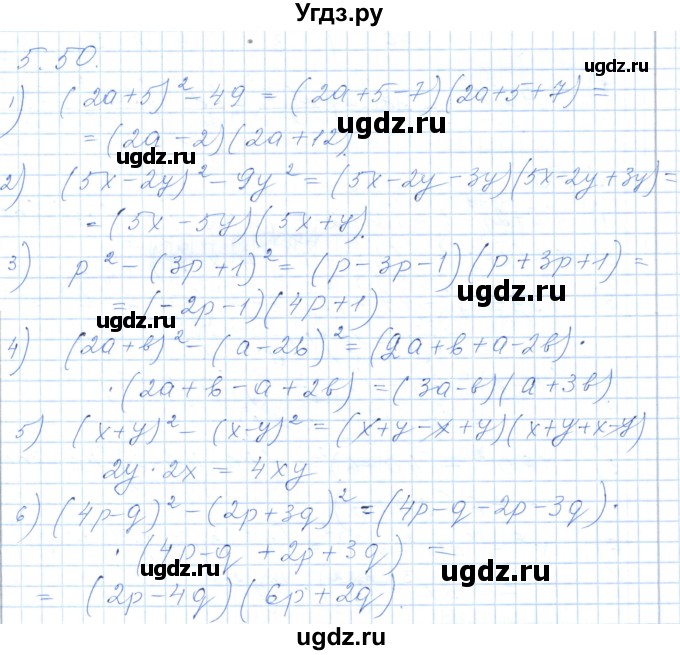 Угдз.ру
5.50.
1) (2a+5)² - 49 = (2a+5-7)(2a+5+7) =
= (2a-2)(2a+12)
2) (5x-2y)² - 9y² = (5x-2y-3y)(5x-2y+3y) =
= (5x-5y)(5x+y).
3) p² - (3p+1)² = (p-3p-1)(p+3p+1) =
= (-2p-1)(4p+1)
4) (2a+b)² - (a-2b)² = (2a+b+a-2b)·
·(2a+b-a+2b) = (3a-b)(a+3b)
5) (x+y)² - (x-y)² = (x+y-x+y)(x+y+x-y)
2y·2x = 4xy
6) (4p-q)² - (2p+3q)² = (4p-q-2p-3q)·
·(4p-q+2p+3q) =
= (2p-4q)(6p+2q).
ugdz.ru
ugdz.ru
ugdz.ru
ugdz.ru
ugdz.ru
ugdz.ru
ugdz.ru
ugdz.ru
ugdz.ru
ugdz.ru
ugdz.ru